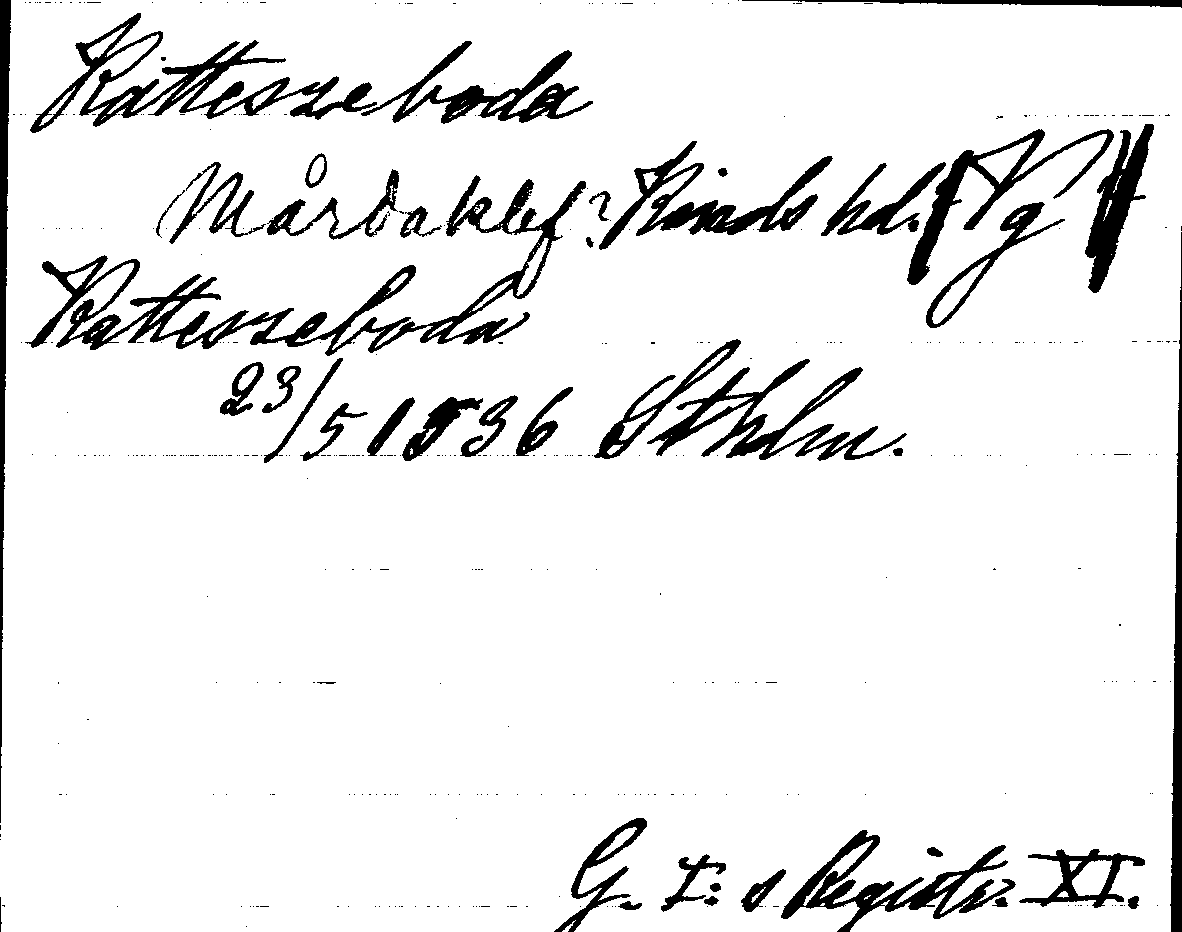 Kätteszeboda
Mårdaklef? Kinds hd. Vg
Katteszeboda
23/5 1536 Sthlm.
G. I:s Registr. XI.